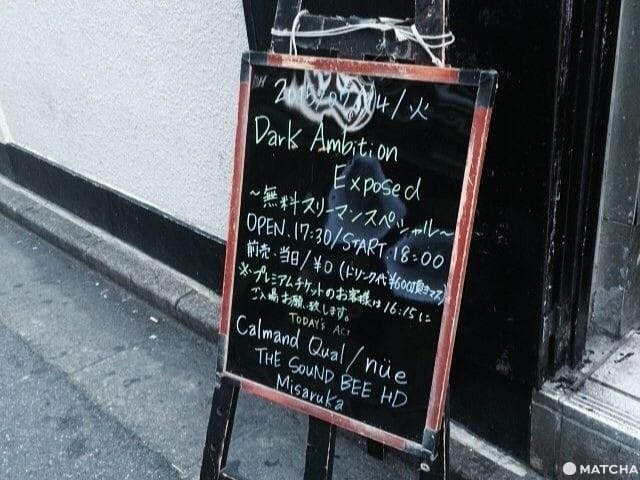 2015/07/14/火
Dark Ambition
Exposed
～無料スリーマンスペシャル～
OPEN.17:30/START.18:00
前売.当日/¥0(ドリンク代¥600頂きマス)
※プレミアムチケットのお客様は16:15に
ご入場お願い致します。
TODAY's ACT
Calmand Qual/nüe
THE SOUND BEE HD
Misaruka
MATCHA